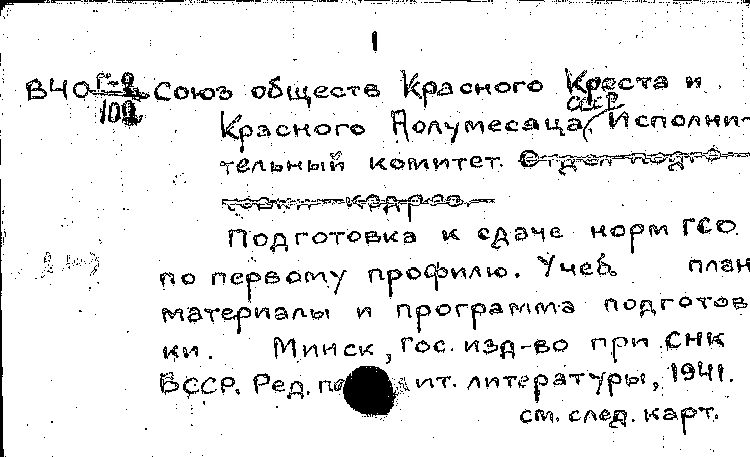 1
ВЧО Г-9 Союз обществ Красного Креста и
102 СССР
Красного Полумесяца, Исполни-
тельный комитет. Отдел подго-
товки кадров.
Подготовка к сдаче норм ГСО
по первому профилю. Учеб. план
материалы и программа подготов
ки. Минск, Гос. изд-во при СНК
БССР. Ред. по ит. литературы, 1941.
см. след. карт.